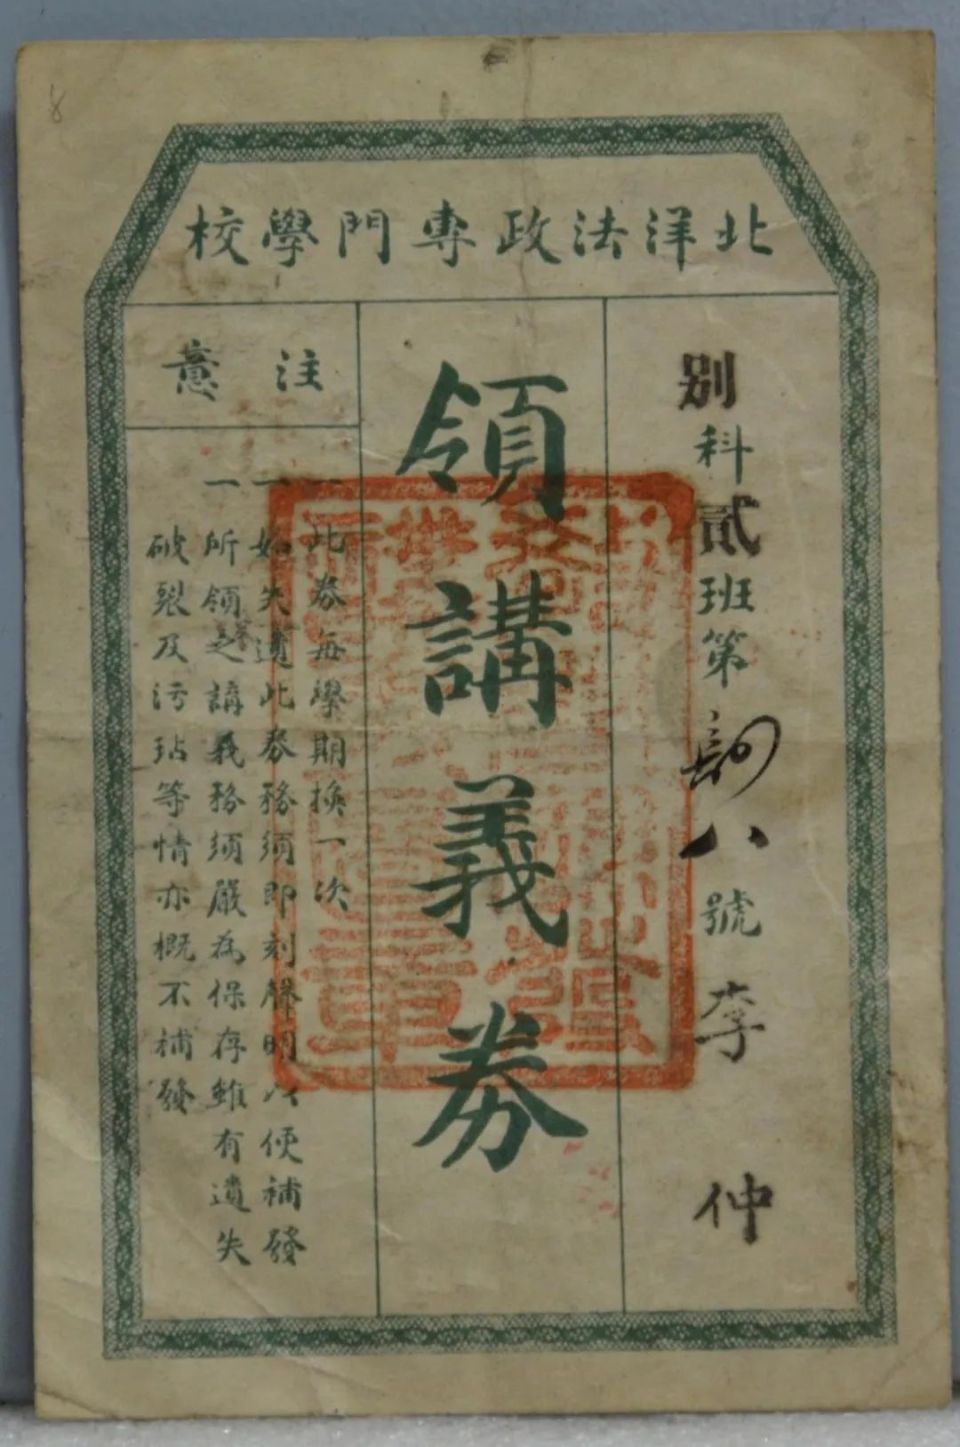 北洋法政專門學校
別科貳班第 八號李仲
領講義券
注意
一此券每學期換一次
一如失遺此券務須即刻聲明以便補發
一所領之講義務須嚴為保存雖有遺失
破裂及污玷等情亦概不補發